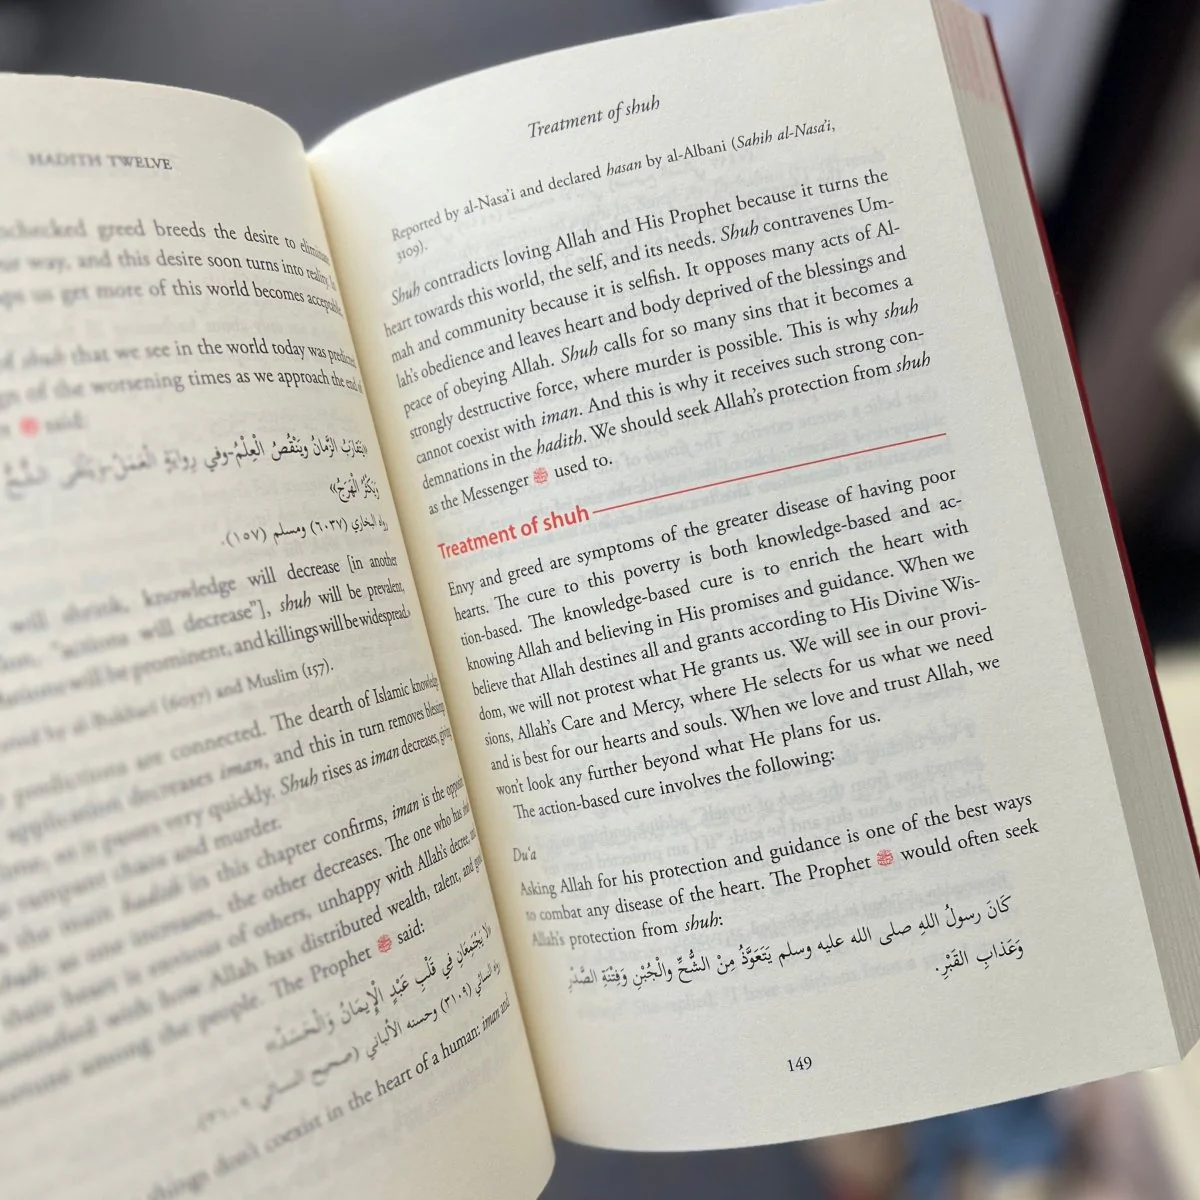 HADITH TWELVE
greed breeds the desire to eliminate
way, and this desire soon turns into reality.
us get more of this world becomes acceptable.
of shuh that we see in the world today was predicted
of the worsening times as we approach the end of
ﷺ said:
«يَتَقَارَبُ الزَّمَانُ وَيَنْقُصُ الْعِلْمُ-وفي رِوايَةٍ العَمَلُ-وَيُلْقَى الشُّحُّ
وَيَكْثُرُ الْهَرْجُ»
رواه البخاري (٦٠٣٧) ومسلم (١٥٧).
will shrink, knowledge will decrease [in another
"actions will decrease"], shuh will be prevalent,
will be prominent, and killings will be widespread.
by al-Bukhari (6037) and Muslim (157).
predictions are connected. The dearth of Islamic knowledge
application decreases iman, and this in turn removes blessing
as it passes very quickly. Shuh rises as iman decreases, giving
rampant chaos and murder.
the main hadith in this chapter confirms, iman is the opposite
as one increases, the other decreases. The one who has
their heart is envious of others, unhappy with Allah's decree, and
with how Allah has distributed wealth, talent, and
among the people. The Prophet ﷺ said:
«لا يَجْتَمِعَانِ فِي قَلْبِ عَبْدٍ الْإِيمَانُ وَالْحَسَدُ»
رواه النسائي (٣١٠٩) وحسنه الألباني (صحيح النسائي ٣١٠٩).
things don't coexist in the heart of a human: iman and
Treatment of shuh
Reported by al-Nasa'i and declared hasan by al-Albani (Sahih al-Nasa'i,
3109).
Shuh contradicts loving Allah and His Prophet because it turns the
heart towards this world, the self, and its needs. Shuh contravenes Um-
mah and community because it is selfish. It opposes many acts of Al-
lah's obedience and leaves heart and body deprived of the blessings and
peace of obeying Allah. Shuh calls for so many sins that it becomes a
strongly destructive force, where murder is possible. This is why shuh
cannot coexist with iman. And this is why it receives such strong con-
demnations in the hadith. We should seek Allah's protection from shuh
as the Messenger ﷺ used to.
Treatment of shuh
Envy and greed are symptoms of the greater disease of having poor
hearts. The cure to this poverty is both knowledge-based and ac-
tion-based. The knowledge-based cure is to enrich the heart with
knowing Allah and believing in His promises and guidance. When we
believe that Allah destines all and grants according to His Divine Wis-
dom, we will not protest what He grants us. We will see in our provi-
sions, Allah's Care and Mercy, where He selects for us what we need
and is best for our hearts and souls. When we love and trust Allah, we
won't look any further beyond what He plans for us.
The action-based cure involves the following:
Du'a
Asking Allah for his protection and guidance is one of the best ways
to combat any disease of the heart. The Prophet ﷺ would often seek
Allah's protection from shuh:
كَانَ رسولُ اللهِ صلى الله عليه وسلم يَتَعَوَّذُ مِنْ الشُّحِّ والْجُبْنِ وَفِتْنَةِ الصَّدْرِ
وَعَذابِ القَبْرِ.
149